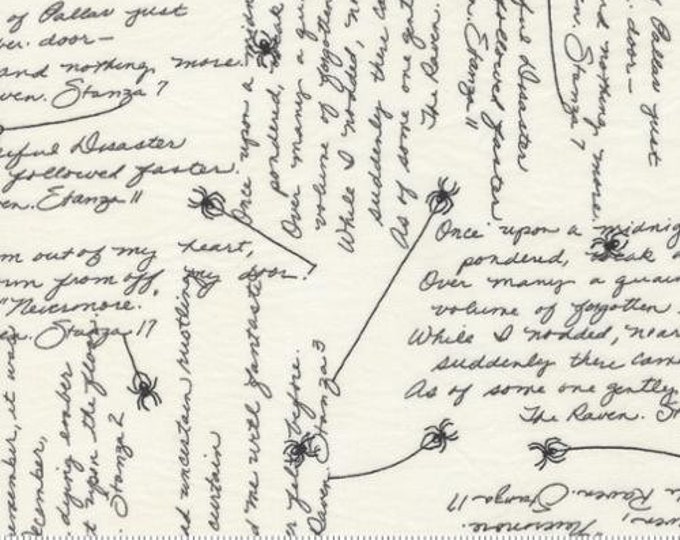 of Pallas just
door—
and nothing more.
Stanza 7
Disaster
followed faster
Stanza 11
out of my heart,
from off my door!
"Nevermore."
Stanza 17
it was
dying ember
upon the floor
Stanza 2
uncertain rustling
curtain
me with fantastic
felt before.
Raven. Stanza 3
Once upon a
pondered, weak
Over many a
volume of forgotten
While I nodded,
suddenly there
As of some one
The Raven.
Stanza 11
followed faster
Disaster
Stanza 7
and nothing more.
door—
Pallas just
Once upon a
pondered, weak a
Over many a
volume of forgotten
While I nodded,
suddenly there came
As of some one gently
The Raven.
Raven. Stanza 17
Nevermore.